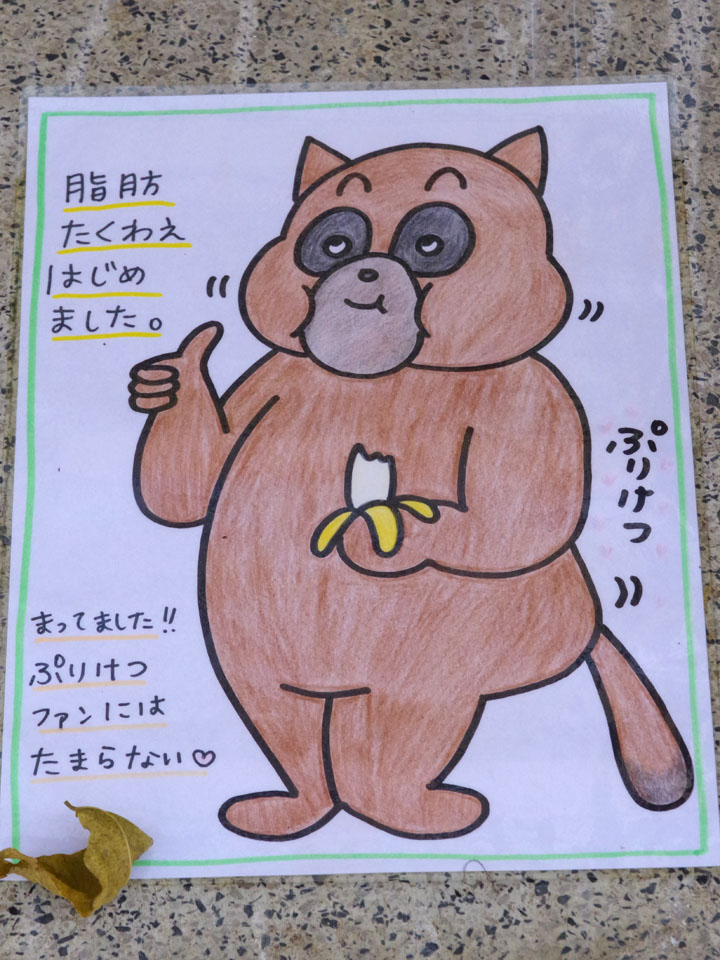 脂肪
たくわえ
はじめ
ました。
ぷりけつ
まってました!!
ぷりけつ
ファンには
たまらない♡